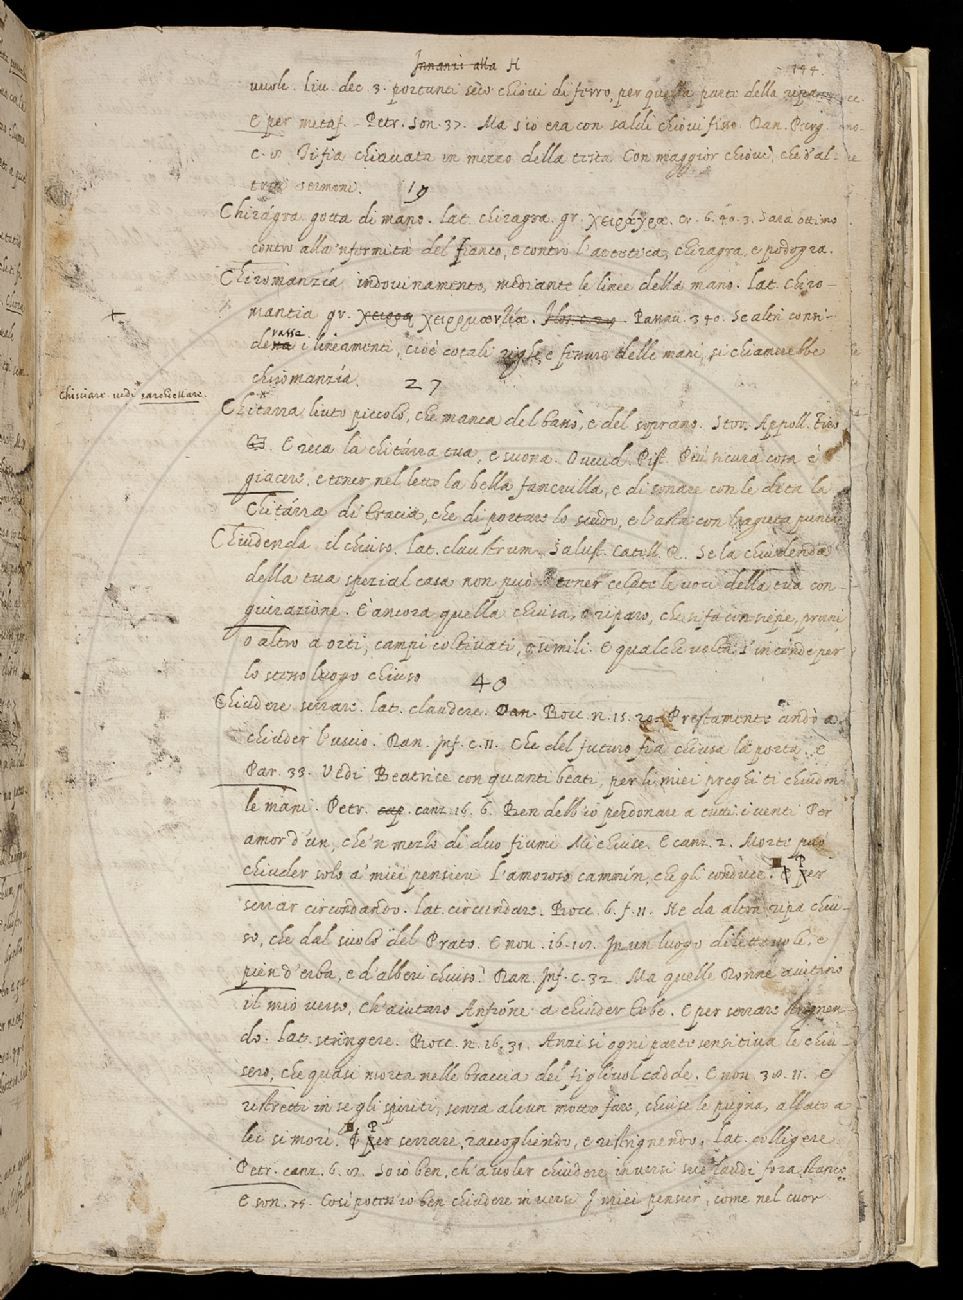 Innanzi alla H
144.
vuole. Liv. dec. 3. portanti seco chiovi di ferro, per quella parte della ripa
E per metaf. Petr. Son. 37. Ma s'io era con saldi chiovi fisso. Dan. Purg.
c. 8. Ti fia chiavata in mezzo della testa Con maggior chiovi, che d'al-
trui sermoni. 19
Chirágra gotta di mano. lat. chiragra. gr. χειράγρα. Cr. 6. 40. 3. Sarà ottimo
contro alla 'nfermità del fianco, e contro l'artetica, chiragra, e podogra.
Chiromanzía, indovinamento, mediante le linee della mano. lat. chiro-
mantia gr. χειρομαντεία. Passau. 340. Se altri consi-
derasse i lineamenti, cioè cotali righe, e fessure delle mani, si chiamerebbe
chiromanzía. 27
Chisciare vedi
Chitarra liuto piccolo, che manca del basso, e del soprano. Stor. Appoll. Tiro
E reca la chitárra tua, e suona. Ovvid. Pist. Più sicura cosa è
giacere, e tener nel letto la bella fanciulla, e di sonare con le dita la
Chitárra di Tracia, che di portare lo scudo, e l'asta con l'aguta punta
Chiudenda il chiuso. lat. claustrum. Salust. Catell. R. Se la chiudenda
della tua spezial casa non può tener celate le voci della tua con-
giurazione. E ancora quella chiusa, o riparo, che si fa con siepe, pruni
o altro a orti, campi coltivati, o simili. E qualche volta s'intende per
lo stesso luogo chiuso 40
Chiudere serrare. lat. claudere. Bocc. n. 15. 20. Prestamente andò a
chiuder l'uscio. Dan. Inf. c. 11. Che del futuro fia chiusa la porta. E
Par. 33. Vedi Beatrice con quanti beati, per li miei preghi ti chiudon
le mani. Petr. canz. 16. 6. Ben debb'io perdonare a tutti i venti Per
amor d'un, che'n mezzo di duo fiumi Mi chiuse. E canz. 2. Morte può
chiuder solo a' miei pensieri L'amoroso cammin, che gli conduce. P per
serrar circondando. lat. circundare. Bocc. 6. f. 11. Ne da altra ripa chiu-
so, che dal suolo del Prato. E non. 16. 10. In un luogo dilettevole, e
pien d'erba, e d'alberi chiuso. Dan. Inf. c. 32. Ma quelle Donne aiutino
il mio verso, Ch'aiutaro Anfióne a chiuder Tebe. E per serrare strignen-
do. lat. stringere. Bocc. n. 16. 31. Anzi sì ogni parte sensitiva le chiu-
sero, che quasi morta nelle braccia del figliuol cadde. E non. 38. 11. E
ristretti in se gli spiriti, senza alcun motto fare, chiuse le pugna, allato a
lei si morì. P per serrare, raccogliendo, e ristrignendo. lat. colligere
Petr. canz. 6. 2. So io ben, ch'a voler chiudere in versi sue laudi fora stanco
E son. 75. Così potess'io ben chiudere in versi I miei pensier, come nel cuor